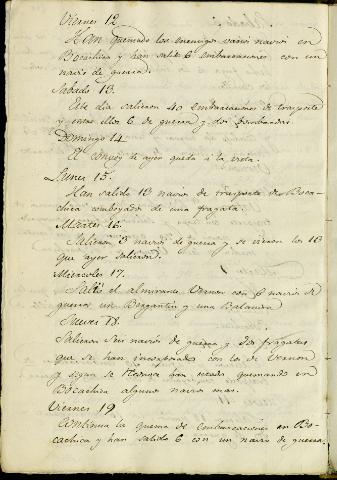 Viernes 12
Han quemado los enemigos varios navios en
Bocachica y han salido 6 embarcaciones con un
navio de guerra.
Sabado 13.
Este dia salieron 40 embarcaciones de trasporte
y entre ellos 6 de guerra y dos bombardas
Domingo 14
El convoy de ayer queda à la vista.
Lunes 15.
Han salido 13 navios de trasporte de Boca-
chica comboyados de una fragata.
Martes 16.
Salieron 3 navios de guerra y se vieron los 13
que ayer salieron.
Miercoles 17.
Salió el almirante Vernon con 6 navios de
guerra un Bergantin y una Balandra
Jueves 18.
Salieron seis navios de guerra y dos fragatas
que se han incorporado con los de Vernon
y segun se reconoce han estado quemando en
Bocachica algunos navios mas.
Viernes 19
Continua la quema de embarcaciones en Bo-
cachica y han salido 6 con un navio de guerra.